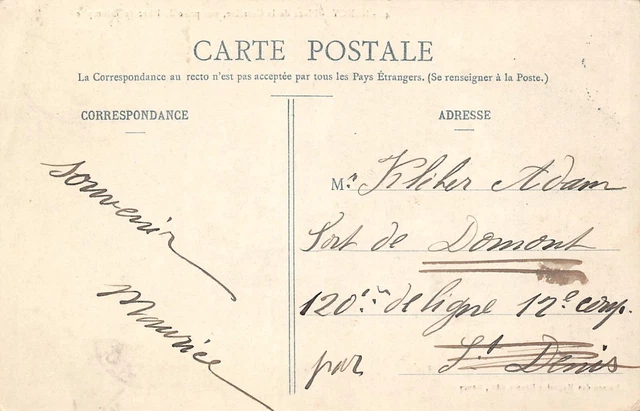 CARTE POSTALE
La Correspondance au recto n'est pas acceptée par tous les Pays Étrangers. (Se renseigner à la Poste.)
CORRESPONDANCE
Souvenir
Maurice
ADRESSE
Mr. Kleber Adam
Fort de Domont
120e de ligne 12e comp.
par St Denis